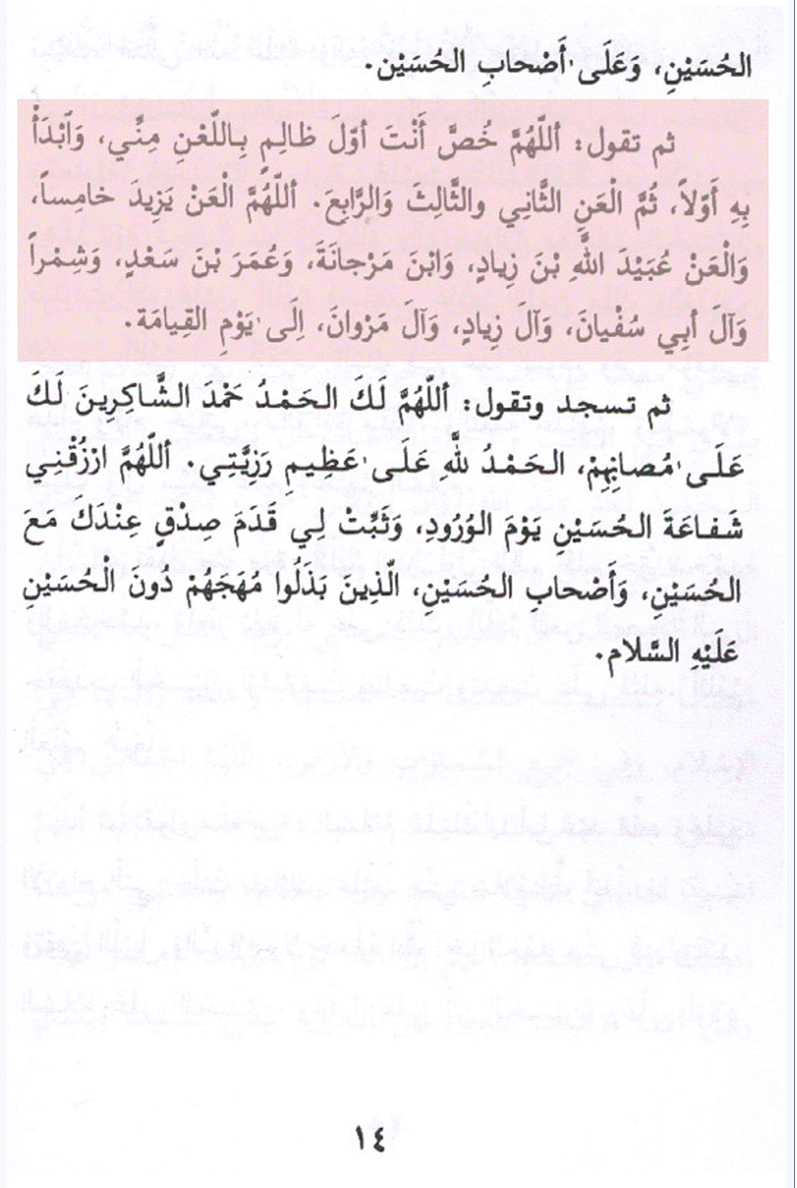 الحُسَيْنِ، وَعَلَى أَصْحابِ الحُسَيْن.
ثم تقول: أللّهُمَّ خُصَّ أَنْتَ أوّلَ ظالِمٍ بِاللّعْنِ مِنّي، وَٱبْدَأْ
بِهِ أَوّلاً، ثُمَّ الْعَنِ الثَّانِي والثَّالِثَ وَالرَّابِعَ. أللّهُمَّ الْعَنْ يَزِيدَ خامِساً،
وَالْعَنْ عُبَيْدَ اللَّهِ بْنَ زِيادٍ، وَابْنَ مَرْجانَةَ، وَعُمَرَ بْنَ سَعْدٍ، وَشِمْراً
وَآلَ أبِي سُفْيانَ، وَآلَ زِيادٍ، وَآلَ مَرْوانَ، اِلَى يَوْمِ القِيامَة.
ثم تسجد وتقول: أللّهُمَّ لَكَ الحَمْدُ حَمْدَ الشَّاكِرِينَ لَكَ
عَلَى مُصابِهِمْ، الحَمْدُ للَّهِ عَلَى عَظِيمِ رَزِيَّتِي. أللّهُمَّ ارْزُقْنِي
شَفاعَةَ الحُسَيْنِ يَوْمَ الوُرُودِ، وَثَبِّتْ لِي قَدَمَ صِدْقٍ عِنْدَكَ مَعَ
الحُسَيْنِ، وَأَصْحابِ الحُسَيْنِ، الّذِينَ بَذَلُوا مُهَجَهُمْ دُونَ الْحُسَيْنِ
عَلَيْهِ السَّلام.
١٤